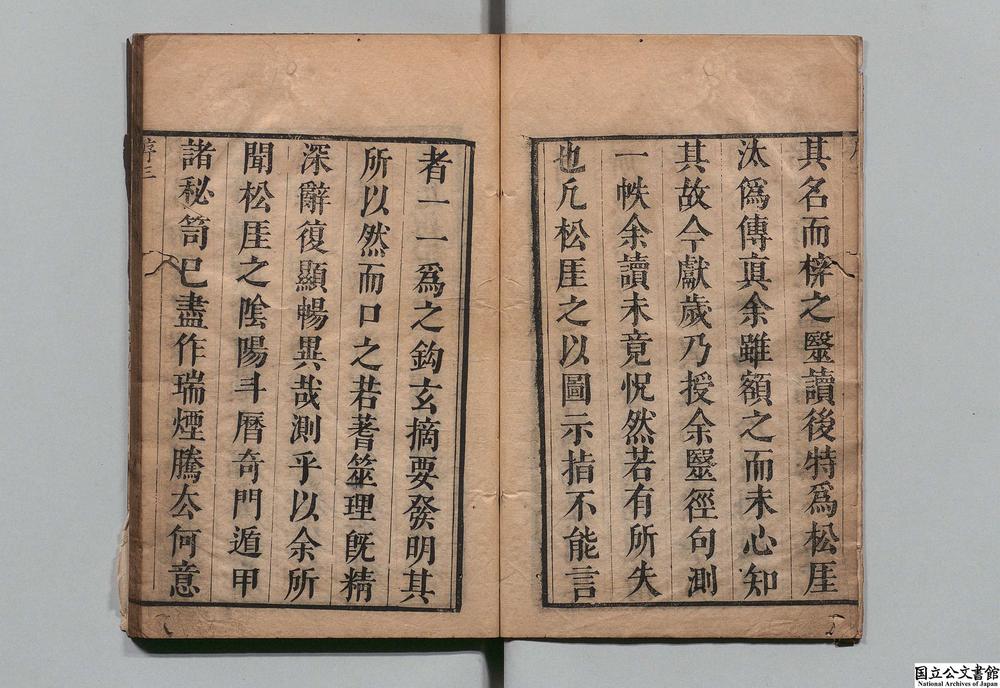 其名而梓之毉讀後特爲松厓
汰爲傳眞余雖額之而未心知
其故今獻歲乃授余毉徑句測
一帙余讀未竟怳然若有所失
也凢松厓之以圖示指不能言
者一一爲之鈎玄摘要發明其
所以然而口之若蓍筮理旣精
深辭復顯暢異哉測乎以余所
聞松厓之陰陽斗曆奇門遁甲
諸秘笥巳盡作瑞煙騰厺何意
序三
国立公文書館
National Archives of Japan